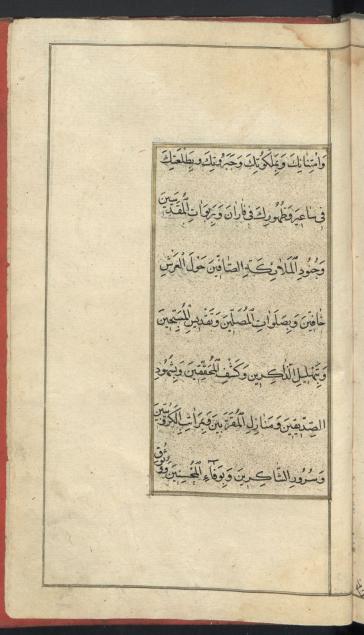 وَامْتِنَانِكَ وَبِمَلَكُوتِكَ وَجَبَرُوتِكَ وَبِطَلْعَتِكَ
فِى سَاعِيرَ وَظُهُورِكَ فِى فَارَانَ وَبِرَبَوَاتِ الْمُقَدَّسِينَ
وَجُنُودِ الْمَلَائِكَةِ الصَّافِّينَ حَوْلَ الْعَرْشِ
حَافِّينَ وَبِصَلَوَاتِ الْمُصَلِّينَ وَتَقْدِيسِ الْمُسَبِّحِينَ
وَتَهْلِيلِ الذَّاكِرِينَ وَكَشْفِ الْمُحَقِّقِينَ وَشُهُودِ
الصِّدِّيقِينَ وَمَنَازِلِ الْمُقَرَّبِينَ وَمَرَاتِبِ الْكَرُوبِيِّينَ
وَسُرُورِ الشَّاكِرِينَ وَبِوَفَاءِ الْمُحْسِنِينَ